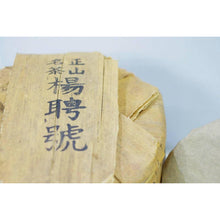 正山
名茶
楊聘號